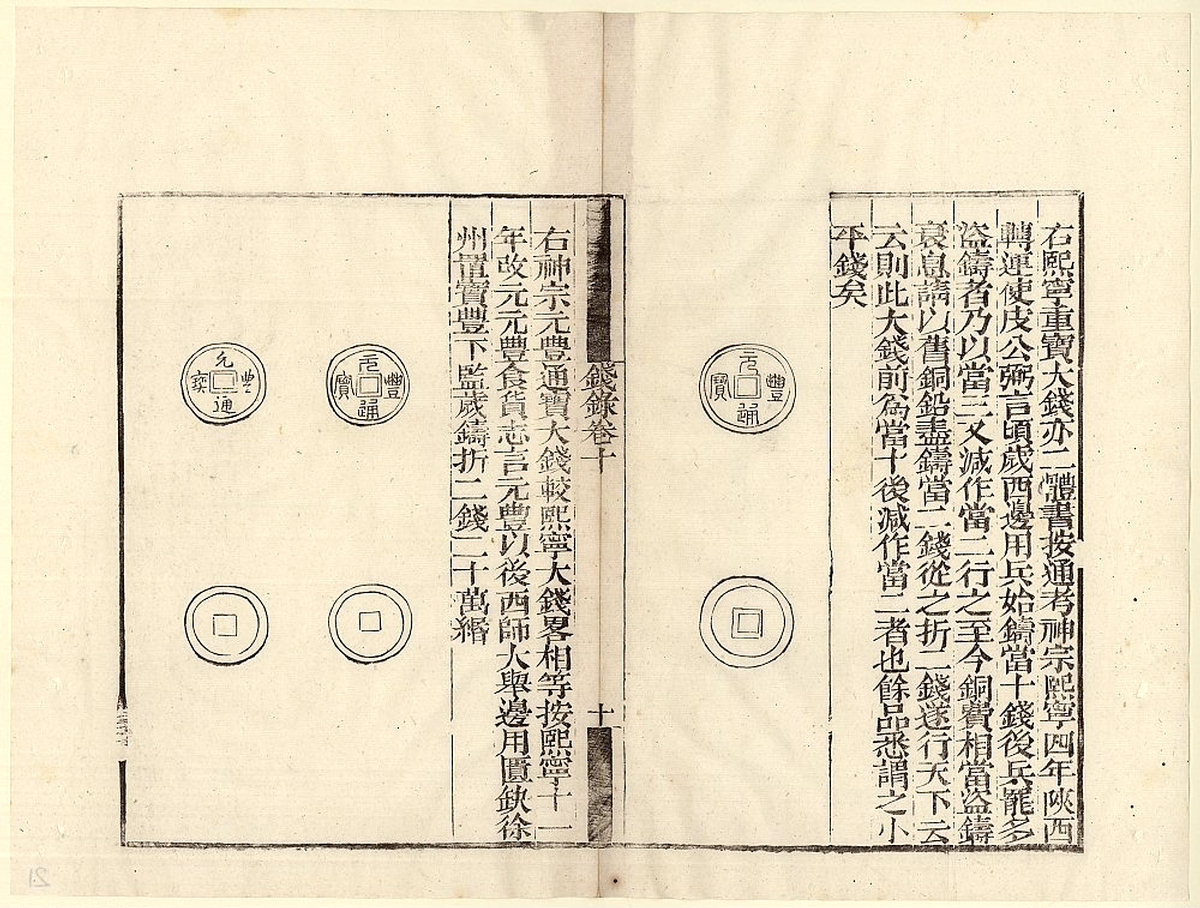 右熙寧重寶大錢亦二體書按通考神宗熙寧四年陝西
轉運使皮公弼言頃歲西邊用兵始鑄當十錢後兵罷多
盜鑄者乃以當三又減作當二行之至今銅費相當盜鑄
衰息請以舊銅鉛盡鑄當二錢從之折二錢遂行天下云
云則此大錢前為當十後減作當二者也餘品悉謂之小
平錢矣
元豐通寶
錢錄卷十
十
右神宗元豐通寶大錢較熙寧大錢畧相等按熙寧十一
年改元元豐食貨志言元豐以後西師大舉邊用匱缺徐
州置寶豐下監歲鑄折二錢二十萬緡
元豐通寶
元豐通寶
21